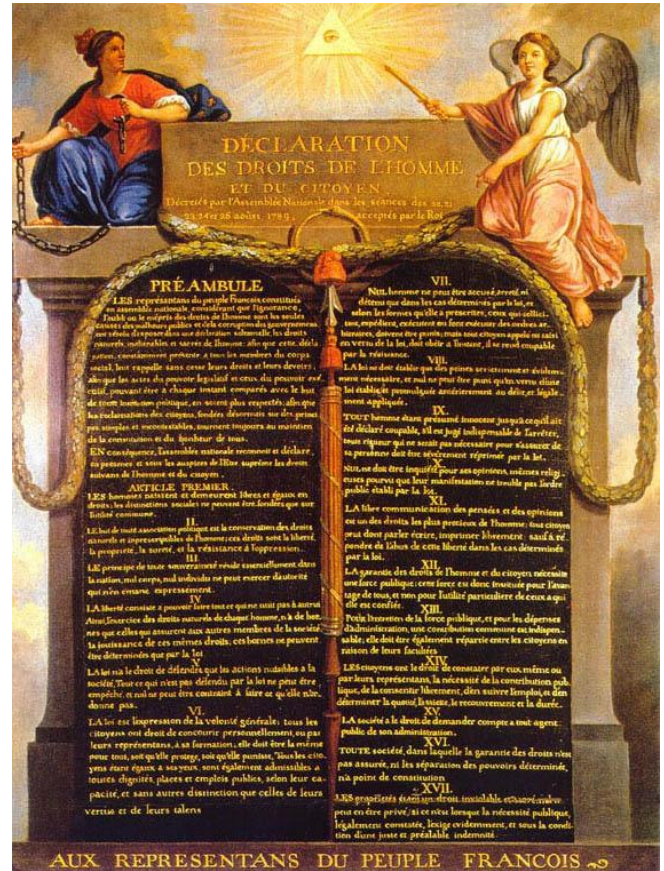 DÉCLARATION
DES DROITS DE L'HOMME
ET DU CITOYEN,
Décretés par l'Assemblée Nationale dans les séances des 20, 21
23, 24 et 26 août 1789, acceptés par le Roi
PRÉAMBULE
LES représentans du peuple François, constitués
en assemblée nationale, considérant que l'ignorance,
l'oubli ou le mépris des droits de l'homme sont les seules
causes des malheurs publics et de la corruption des gouvernemens
ont résolu d'exposer dans une déclaration solemnelle, les droits
naturels, inaliénables et sacrés de l'homme: afin que cette décla
ration, constamment présente a tous les membres du corps
social, leur rappelle sans cesse leurs droits et leurs devoirs;
afin que les actes du pouvoir législatif et ceux du pouvoir exé
cutif, pouvant être à chaque instant comparés avec le but
de toute institution politique, en soient plus respectés; afin que
les reclamations des citoyens, fondées désormais sur des princi
pes simples et incontestables, tournent toujours au maintien
de la constitution et du bonheur de tous.
EN conséquence, l'assemblée nationale reconnoît et déclare,
en presence et sous les auspices de l'Etre suprême les droits
suivans de l'homme et du citoyen.
ARTICLE PREMIER.
LES hommes naissent et demeurent libres et égaux en
droits; les distinctions sociales ne peuvent être fondées que sur
l'utilité commune.
II.
LE but de toute association politique est la conservation des droits
naturels et imprescriptibles de l'homme; ces droits sont la liberté,
la propriété, la sureté, et la résistance à l'oppression.
III.
LE principe de toute souveraineté réside essentiellement dans
la nation, nul corps, nul individu ne peut exercer d'autorité
qui n'en émane expressement.
IV.
LA liberté consiste a pouvoir faire tout ce qui ne nuit pas à autrui
Ainsi, l'exercice des droits naturels de chaque homme, n'a de bor-
nes que celles qui assurent aux autres membres de la société
la jouissance de ces mêmes droits; ces bornes ne peuvent
être déterminées que par la loi
V.
LA loi n'a le droit de défendre que les actions nuisibles a la
société. Tout ce qui n'est pas défendu par la loi ne peut être
empêché, et nul ne peut être contraint à faire ce qu'elle n'or-
donne pas.
VI.
LA loi est l'expression de la volonté générale; tous les
citoyens ont droit de concourir personnellement, ou par
leurs représentans, à sa formation; elle doit être la même
pour tous, soit qu'elle protege, soit qu'elle punisse. Tous les cito-
yens étans égaux à ses yeux, sont également admissibles a
toutes dignités, places et emplois publics, selon leur ca-
pacité, et sans autres distinction que celles de leurs
vertus et de leurs talens
VII.
NUL homme ne peut être accusé, arreté, ni
détenu que dans les cas déterminés par la loi, et
selon les formes qu'elle a prescrites, ceux qui sollici-
tent, expédient, exécutent ou font exécuter des ordres ar-
bitraires, doivent être punis; mais tout citoyen appelé ou saisi
en vertu de la loi, doit obéir a l'instant, il se rend coupable
par la résistance.
VIII.
LA loi ne doit établir que des peines strictement et évidem-
ment nécessaires, et nul ne peut être puni qu'en vertu d'une
loi établie et promulguée antérieurement au délit, et légale-
ment appliquée.
IX.
TOUT homme étant présumé innocent jusqu'à ce qu'il ait
été déclaré coupable, s'il est jugé indispensable de l'arrêter,
toute rigueur qui ne serait pas nécessaire pour s'assurer de
sa personne doit être sévèrement réprimée par la loi.
X.
NUL ne doit être inquiété pour ses opinions, mêmes religi-
euses pourvu que leur manifestation ne trouble pas l'ordre
public établi par la loi.
XI.
LA libre communication des pensées et des opinions
est un des droits les plus precieux de l'homme; tout citoyen
peut donc parler écrire, imprimer librement; sauf à ré-
pondre de l'abus de cette liberté dans les cas déterminés
par la loi.
XII.
LA garantie des droits de l'homme et du citoyen nécessite
une force publique; cette force est donc instituée pour l'avan-
tage de tous, et non pour l'utilité particuliere de ceux a qui
elle est confiée.
XIII.
POUR l'entretien de la force publique, et pour les dépenses
d'administration, une contribution commune est indispen-
sable; elle doit être également répartie entre les citoyens en
raison de leurs facultées
XIV.
LES citoyens ont le droit de constater par eux même ou
par leurs représentans, la nécessité de la contribution pub-
lique, de la consentir librement, d'en suivre l'emploi, et d'en
déterminer la quotité, l'assiette, le recouvrement et la durée.
XV.
LA société a le droit de demander compte a tout agent
public de son administration.
XVI.
TOUTE société, dans laquelle la garantie des droits n'est
pas assurée, ni les séparation des pouvoirs déterminée,
n'a point de constitution
XVII.
LES propriétés étant un droit inviolable et sacré, nul ne
peut en être privé, si ce n'est lorsque la nécessité publique,
légalement constatée, l'exige evidemment, et sous la condi-
tion d'une juste et préalable indemnité.
AUX REPRESENTANS DU PEUPLE FRANCOIS